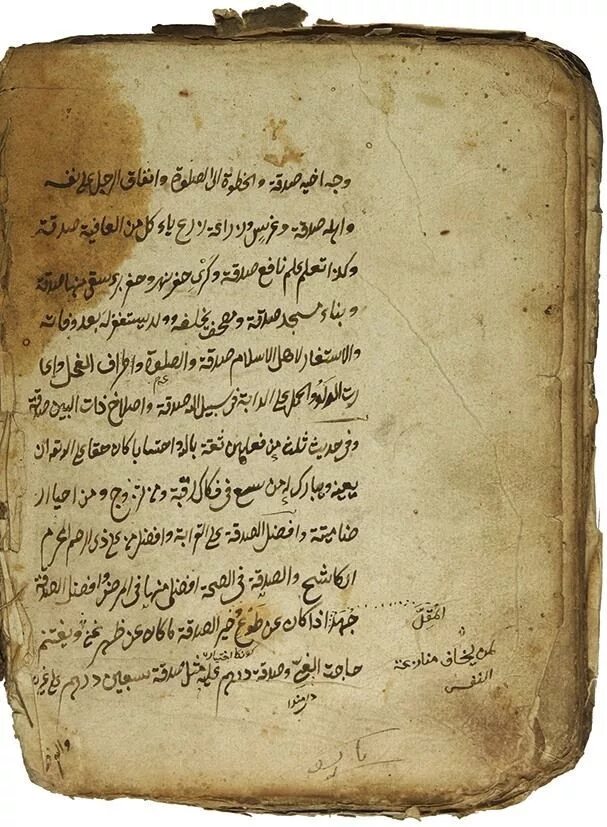 وجه اخيه صدقة والخطوة الى الصلوة وانفاق الرجل على نفسه
واهله صدقة وغرس وزراعة زرع ياء كل من العافية صدقة
وكذا تعلم علم نافع صدقة وكرى حفر نهر وحفر بئر يسقى منها صدقة
وبناء مسجد صدقة ومصحف يخلفه وولد يستغفر له بعد وفاته
والاستغفار لاهل الاسلام صدقة والصلوة واطراف الفحل واعا
رت الدلو والحمل على الدابة فى سبيل الله صدقة واصلاح ذات البين صدقة
وفى حديث ثلث من فعلهن ثقة بالله واحتسابا كان حقا على الله ان
يعينه ويبارك له من سعى فى فكاك رقبة ومن تزوج ومن احيا ار
ضا ميتة وافضل الصدقة على القرابة وافضل منه على ذى الرحم المحرم
الكاشح والصدقة فى الصحة افضل منها فى المرض وافضل الصدقة
جهد اذا كان عن طوع وخير الصدقة ما كان عن ظهر غنى ويغتنم
المقل
حاجة وصدقة درهم مثل صدقة سبعين درهم على غيره
لمن يخاف منازعة
النفس